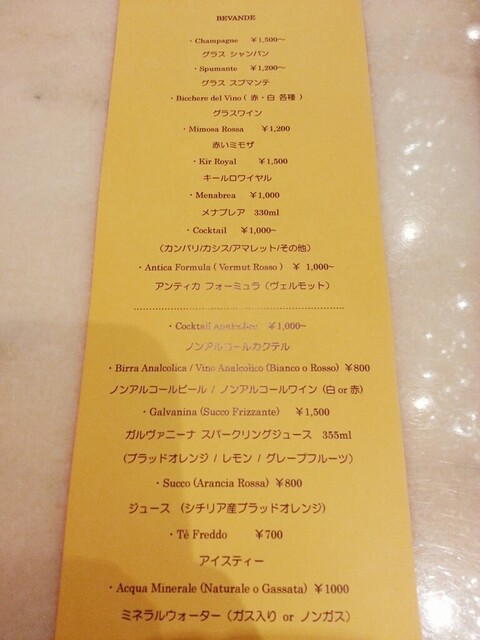 BEVANDE
・Champagne ￥1,500～
グラス シャンパン
・Spumante ￥1,200～
グラス スプマンテ
・Bicchere del Vino ( 赤・白 各種 )
グラスワイン
・Mimosa Rossa ￥1,200
赤いミモザ
・Kir Royal ￥1,500
キールロワイヤル
・Menabrea ￥1,000
メナブレア 330ml
・Cocktail ￥1,000~
（カンパリ/カシス/アマレット/その他）
・Antica Formula ( Vermut Rosso ) ￥ 1,000~
アンティカ フォーミュラ（ヴェルモット）
・Cocktail Analcolico ￥1,000~
ノンアルコールカクテル
・Birra Analcolica / Vino Analcolico (Bianco o Rosso) ￥800
ノンアルコールビール / ノンアルコールワイン (白 or 赤)
・Galvanina (Succo Frizzante) ￥1,500
ガルヴァニーナ スパークリングジュース 355ml
(ブラッドオレンジ / レモン / グレープフルーツ)
・Succo (Arancia Rossa) ￥800
ジュース (シチリア産ブラッドオレンジ)
・Tè Freddo ￥700
アイスティー
・Acqua Minerale (Naturale o Gassata) ￥1000
ミネラルウォーター（ガス入り or ノンガス）